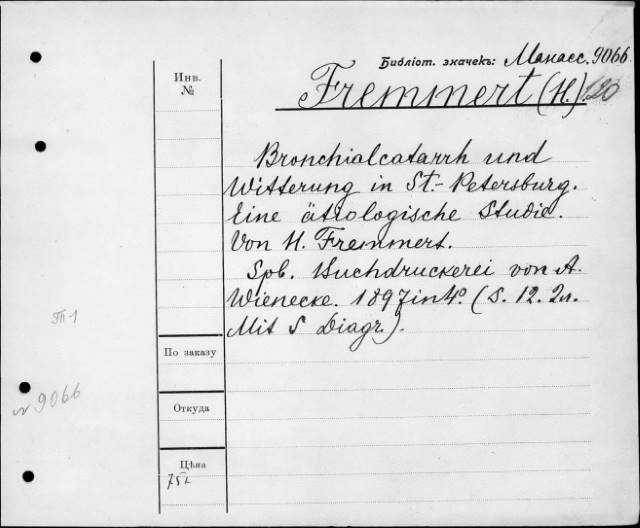 Библіот. значекъ: Манасс. 9066
120
Инв.
№
Fremmert (H.).
Bronchialcatarrh und
Witterung in St.-Petersburg.
Eine ätiologische Studie.
Von H. Fremmert.
Spb. Buchdruckerei von A.
Wienecke. 1897 in 4º. (S. 12. 2л.
Mit 5 Diagr.).
По заказу
9066
Откуда
Цѣна